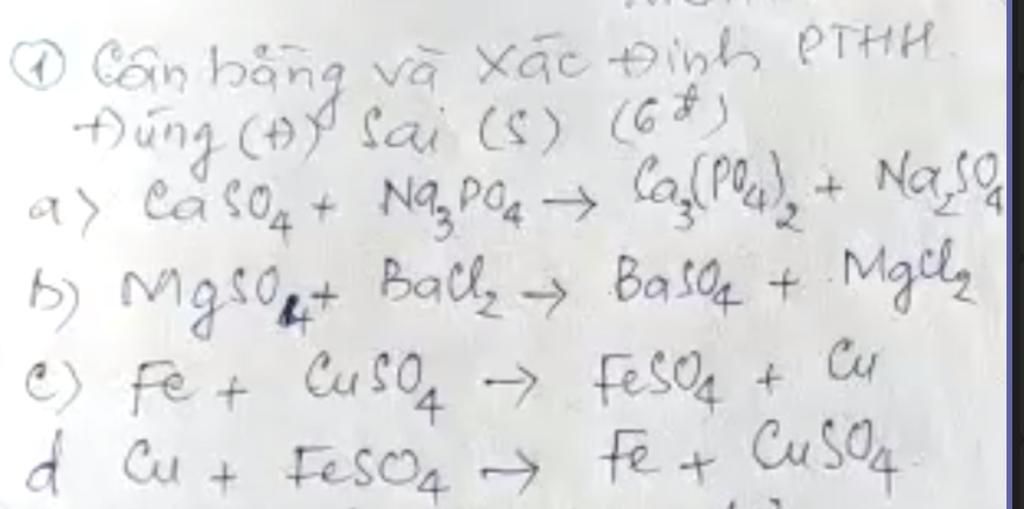 ① Cân bằng và xác định PTHH
Đúng (Đ) Sai (S) (6đ)
a) CaSO₄ + Na₃PO₄ → Ca₃(PO₄)₂ + Na₂SO₄
b) MgSO₄ + BaCl₂ → BaSO₄ + MgCl₂
c) Fe + CuSO₄ → FeSO₄ + Cu
d Cu + FeSO₄ → Fe + CuSO₄